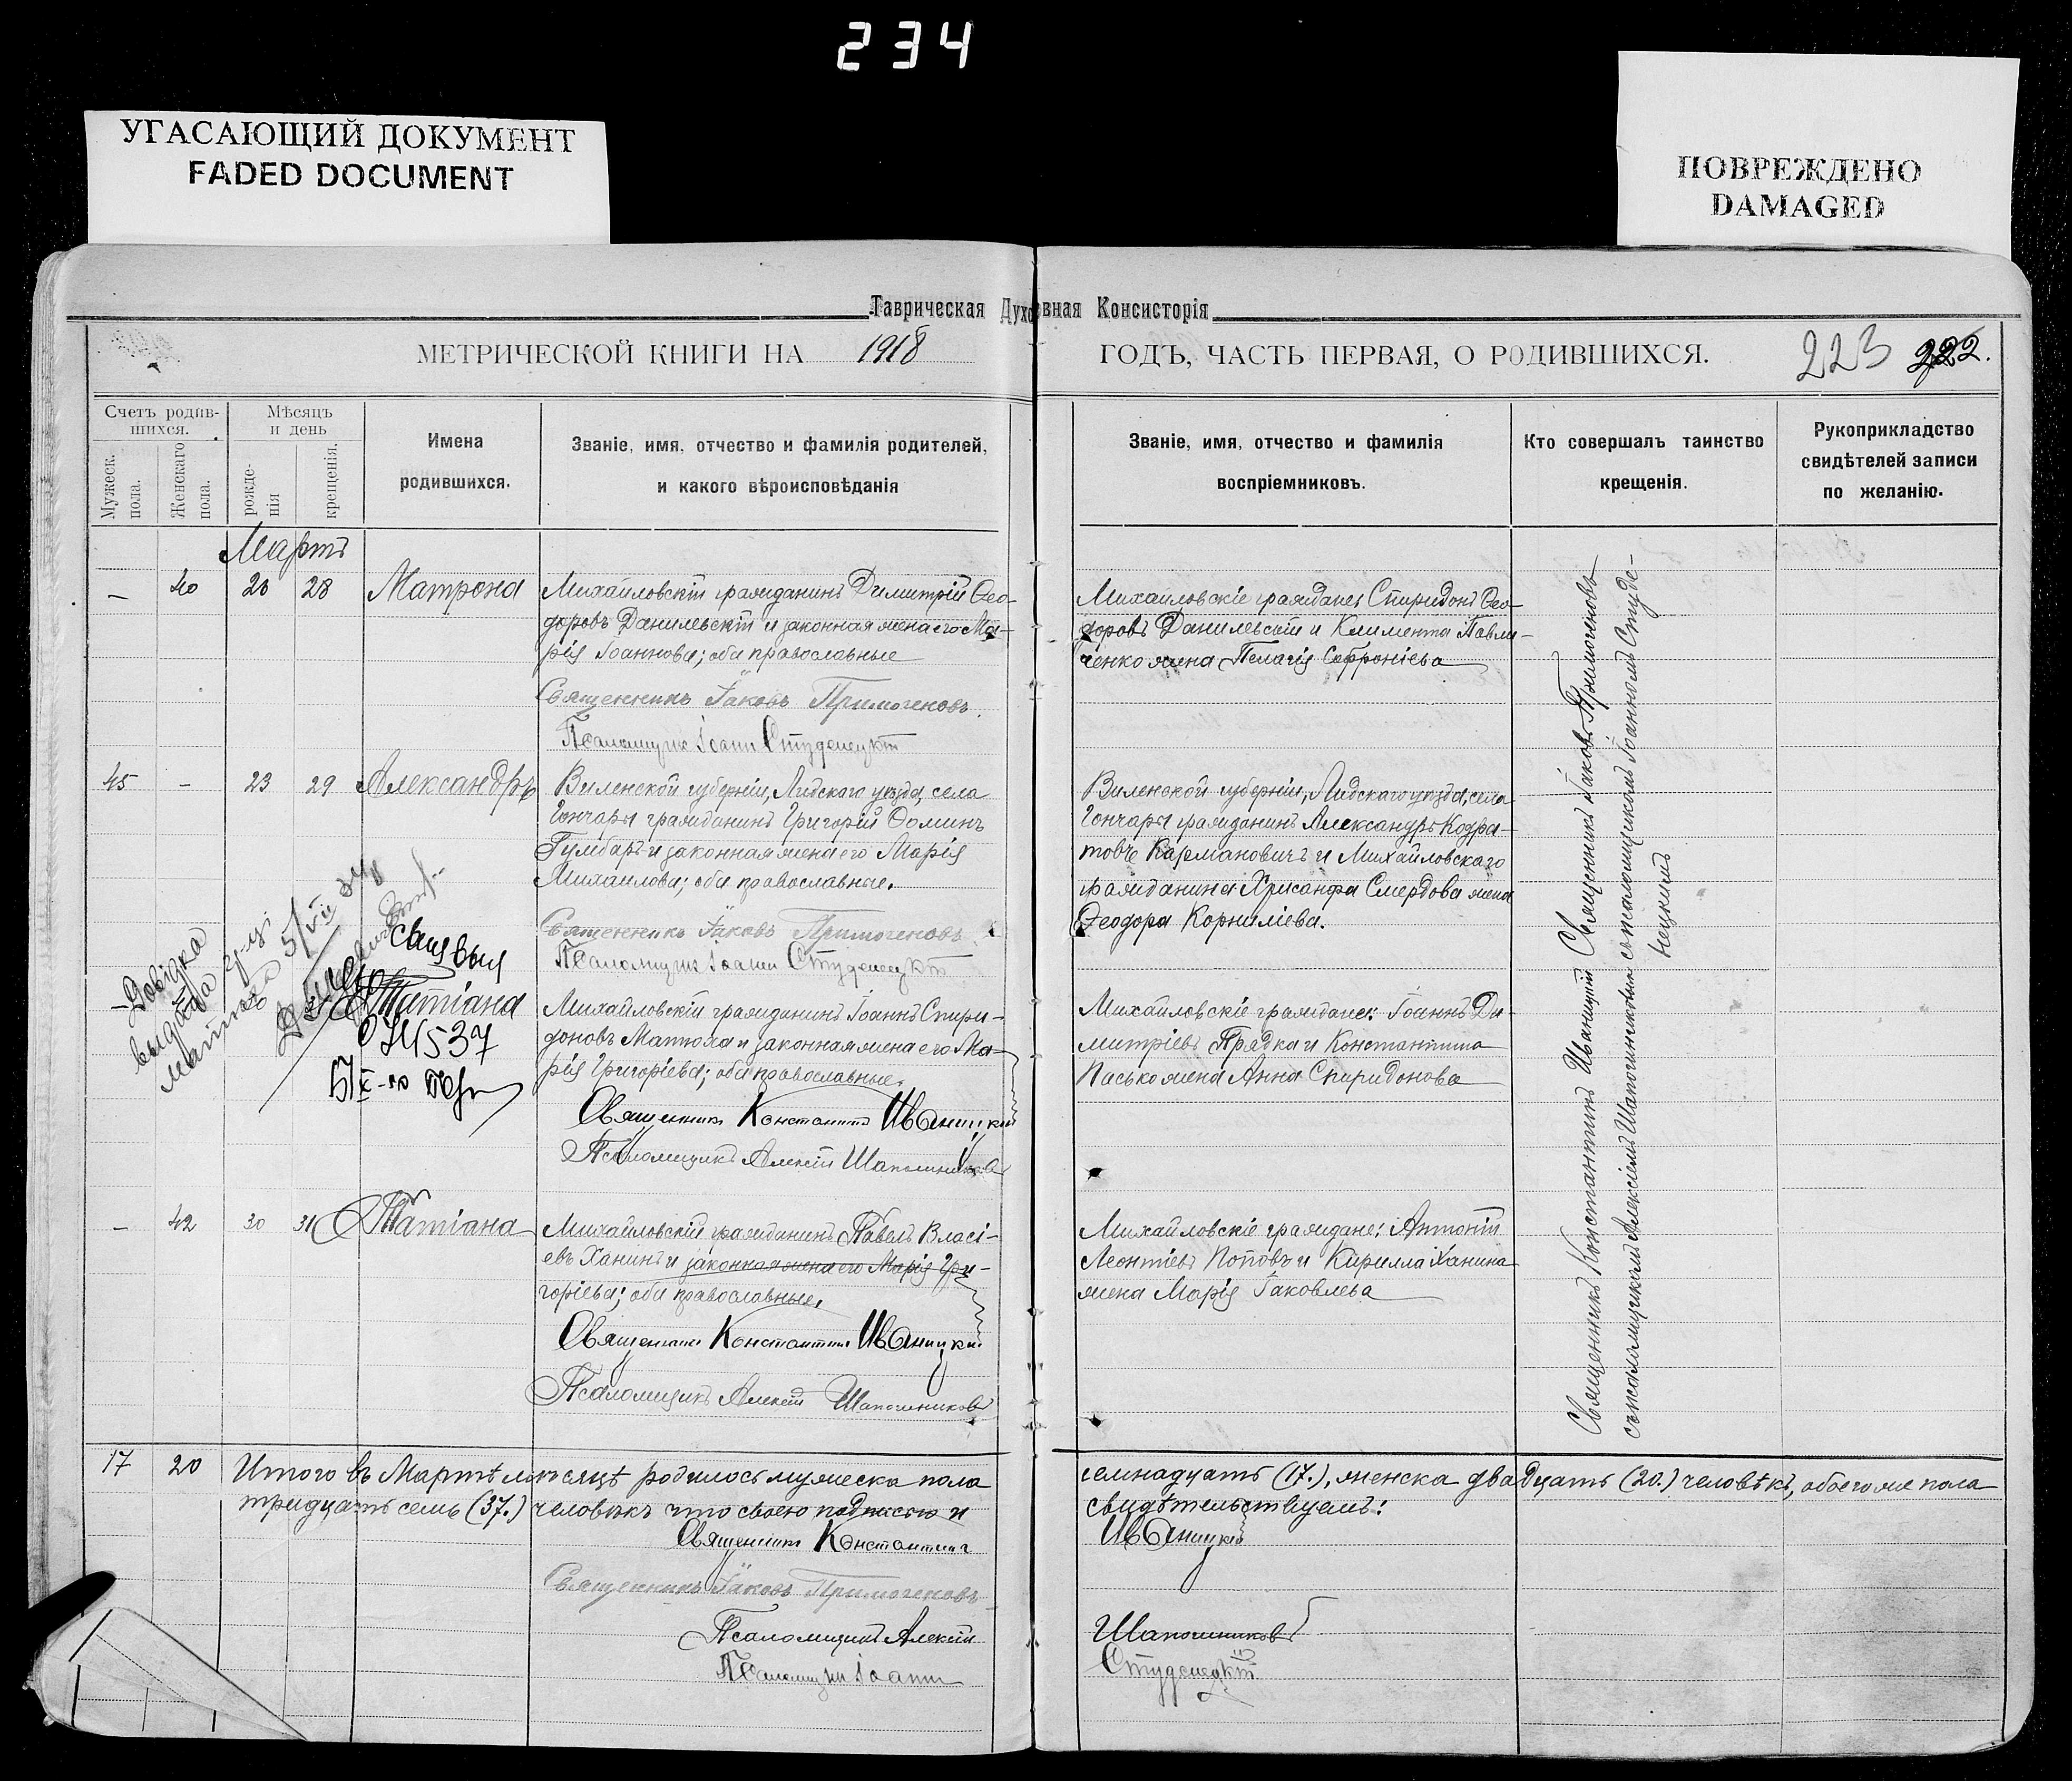 234
УГАСАЮЩИЙ ДОКУМЕНТ
FADED DOCUMENT
ПОВРЕЖДЕНО
DAMAGED
Таврическая Духовная Консисторія
МЕТРИЧЕСКОЙ КНИГИ НА 1918 ГОДЪ, ЧАСТЬ ПЕРВАЯ, О РОДИВШИХСЯ.
223 222.
Счетъ родив-
шихся.
Мужеск.
пола.
Женскаго
пола.
Мѣсяцъ
и день
рожде-
нія
крещенія.
Имена
родившихся.
Званіе, имя, отчество и фамилія родителей,
и какого вѣроисповѣданія
Званіе, имя, отчество и фамилія
воспріемниковъ.
Кто совершалъ таинство
крещенія.
Рукоприкладство
свидѣтелей записи
по желанію.
Мартъ
— 40 20 28 Матрона
Михайловскій гражданинъ Димитрій Ѳео-
доровъ Данилевскій и законная жена его Ма-
рія Іоаннова; оба православные
Священникъ Іаковъ Примогеновъ.
Псаломщик Іоанн Студенецкій
Михайловскіе граждане: Спиридонъ Ѳео-
доровъ Данилевскій и Климента Павли-
ченко жена Пелагія Софроніева
45 — 23 29 Александръ
Виленской губерніи, Лидскаго уѣзда, села
Гончары гражданинъ Григорій Ѳоминъ
Гумбаръ и законная жена его Марія
Михаилова; оба православные.
Священникъ Іаковъ Примогеновъ
Псаломщик Іоанн Студенецкій
Виленской губерніи, Лидскаго уѣзда, села
Гончары гражданинъ Александръ Кодра-
товъ Кармановичъ и Михайловскаго
гражданина Хрисанфа Смердова жена
Ѳеодора Корниліева.
Довідка
видана
5/VII
31 Татіана
537
Михайловскій гражданинъ Іоаннъ Спири-
доновъ Матюха и законная жена его Ма-
рія Григоріева; оба православные.
Священникъ Константинъ Иваницкій
Псаломщикъ Алексій Шапошниковъ
Михайловскіе граждане: Іоаннъ Ди-
митріевъ Прядка и Константина
Пасько жена Анна Спиридонова
— 42 30 31 Татіана
Михайловскій гражданинъ Павелъ Власі-
евъ Ханинъ и законная жена его Марія Гри-
горіева; оба православные.
Священникъ Константинъ Иваницкій
Псаломщикъ Алексій Шапошниковъ
Михайловскіе граждане: Антоній
Леонтіевъ Поповъ и Кирилла Ханина
жена Марія Іаковлева
Священникъ Константинъ Иваницкій Священникъ Іаковъ Примогеновъ
съ псаломщикомъ Алексіемъ Шапошниковымъ съ псаломщикомъ Іоанномъ Студе-
нецкимъ
17 20 Итого въ Мартѣ мѣсяцѣ родилось мужеска пола семнадцать (17.), женска двадцать (20.) человѣкъ, обоего же пола
тридцать семь (37.) человѣкъ что своею подписью и свидѣтельствуемъ:
Священникъ Константинъ Иваницкій
Священникъ Іаковъ Примогеновъ
Псаломщикъ Алексій Шапошниковъ
Псаломщик Іоанн Студенецкій